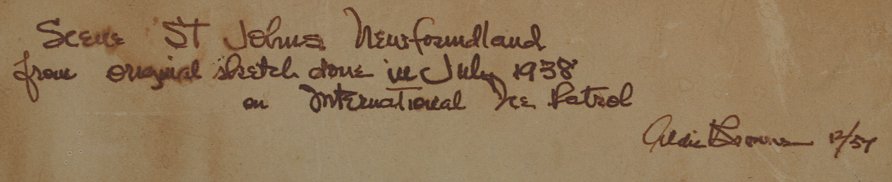 Scene ST Johns Newfoundland
from original sketch done in July 1938
on International Ice Patrol
Aldis Browne 12/57